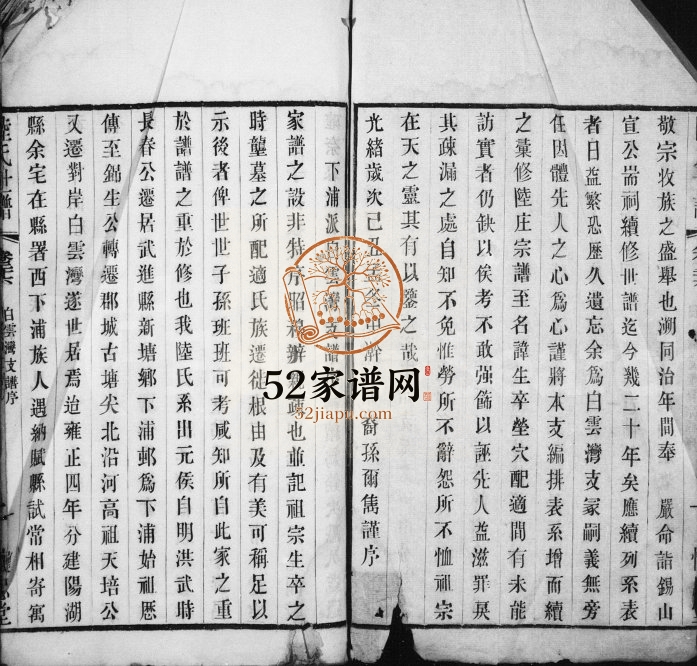 敬宗收族之盛舉也溯同治年間奉 嚴命詣錫山
宣公耑祠續修世譜迄今幾二十年矣應續列系表
者日益繁恐歷久遺忘余爲白雲灣支冢嗣義無旁
任因體先人之心爲心謹將本支編排表系增而續
之彙修陸庄宗譜至名諱生卒塋穴配適間有未能
訪實者仍缺以俟考不敢强飾以誣先人益滋罪戾
其疎漏之處自知不免惟勞所不辭怨所不恤祖宗
在天之靈其有以鑒之哉
光緒歲次己丑孟冬 裔孫爾雋謹序
下浦派白雲灣支譜序
家譜之設非特序昭穆辨親疎也並記祖宗生卒之
時壟墓之所配適氏族遷徙根由及有美可稱足以
示後者俾世世子孫班班可考咸知所自此家之重
於譜譜之重於修也我陸氏系出元侯自明洪武時
長春公遷居武進縣新塘鄉下浦邨爲下浦始祖歷
傳至錦生公轉遷郡城古塘尖北沿河高祖天培公
又遷對岸白雲灣遂世居焉迨雍正四年分建陽湖
縣余宅在縣署西下浦族人遇納賦縣試常相寄寓
陸氏世譜
白雲灣支譜序
52家谱网
52jiapu.com